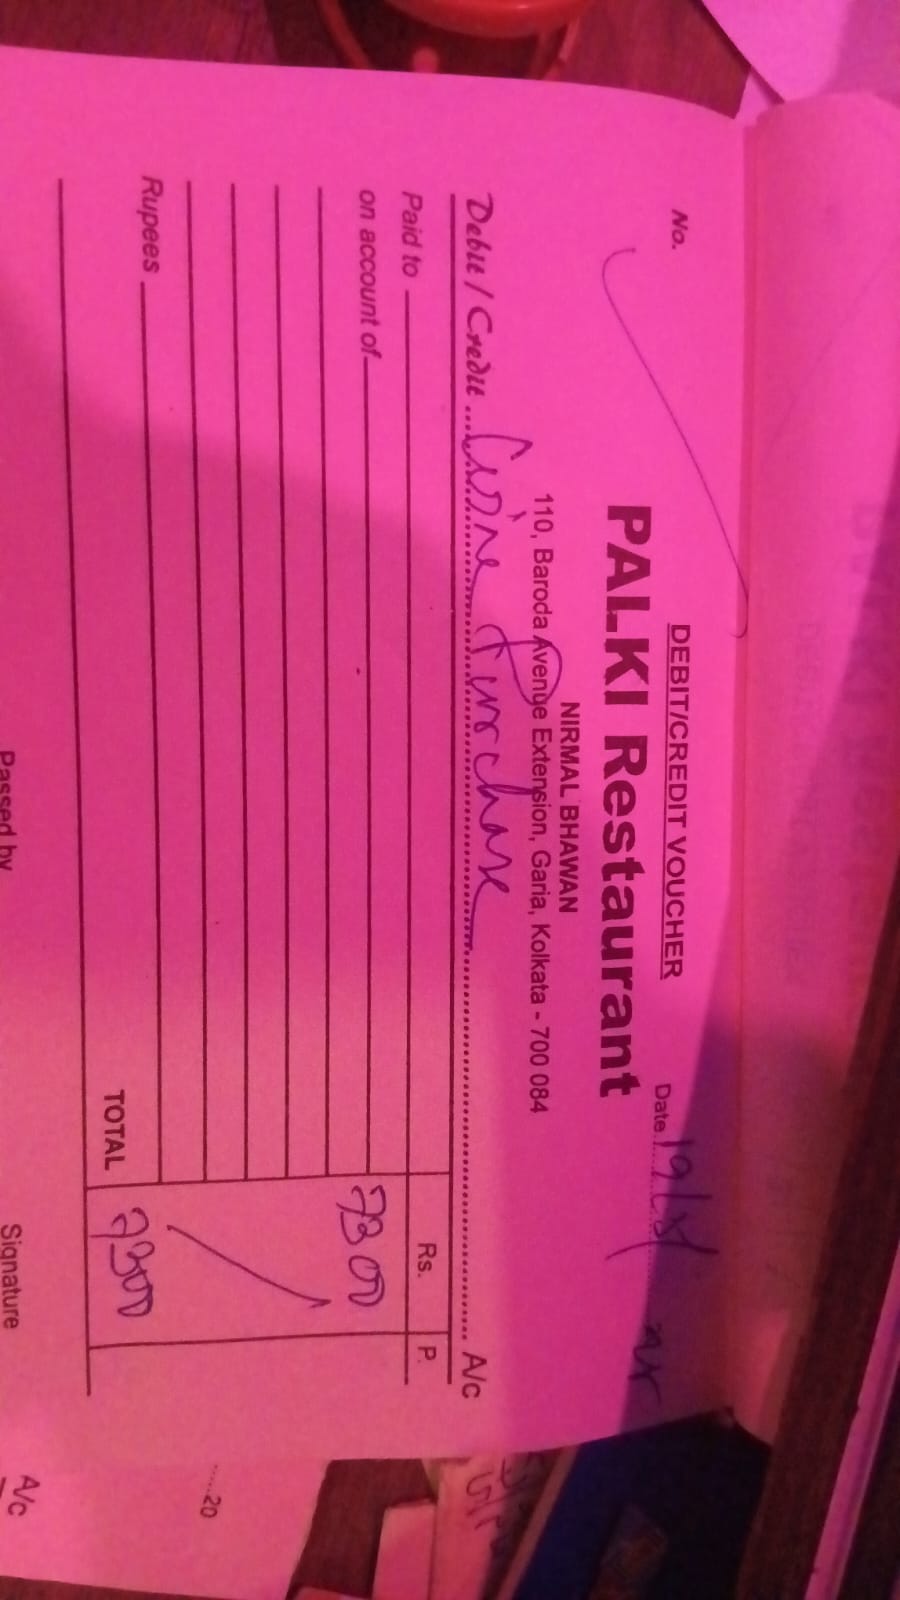 DEBIT/CREDIT VOUCHER
No. Date
PALKI Restaurant
NIRMAL BHAWAN
110, Baroda Avenue Extension, Garia, Kolkata - 700 084
Debit / Credit Wine Purchase A/c
Rs. P.
Paid to
on account of 7300
Rupees
TOTAL 7300
Passed by Signature
20
A/c